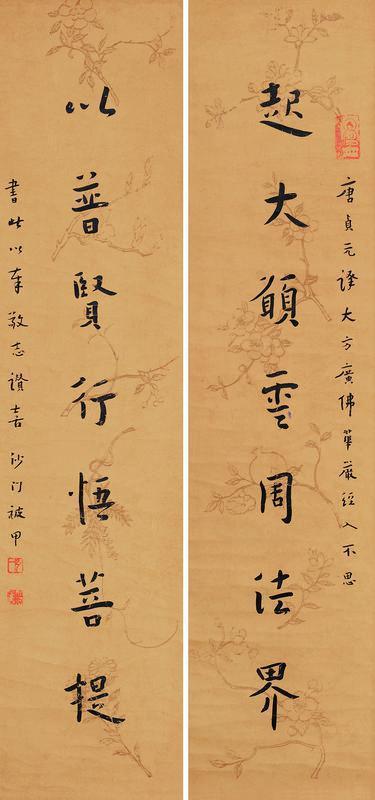 唐貞元譯大方廣佛華嚴經入不思
起大願雲周法界
以普賢行悟菩提
書此以奉敬志讚喜沙門被甲